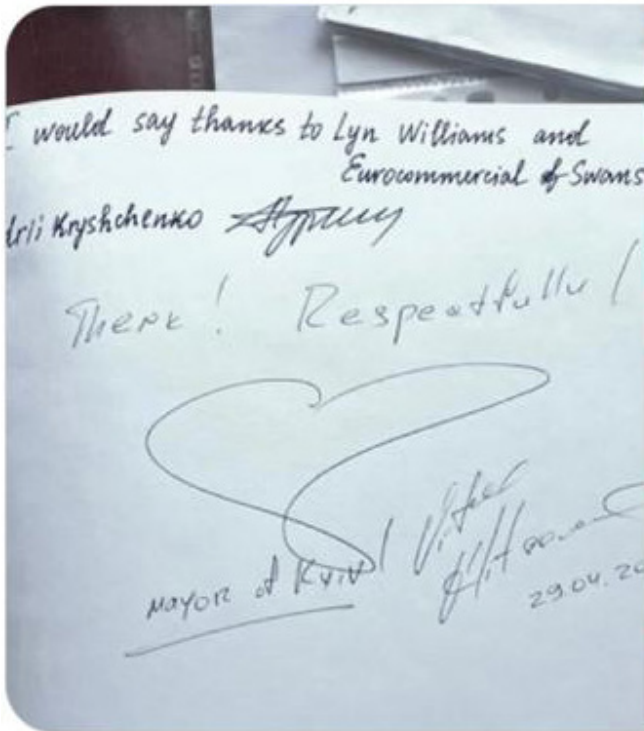 I would say thanks to Lyn Williams and
Eurocommercial of Swans
drii Kryshchenko
Thenk! Respeatfully!
Mayor of Kyiv!
29.04.20